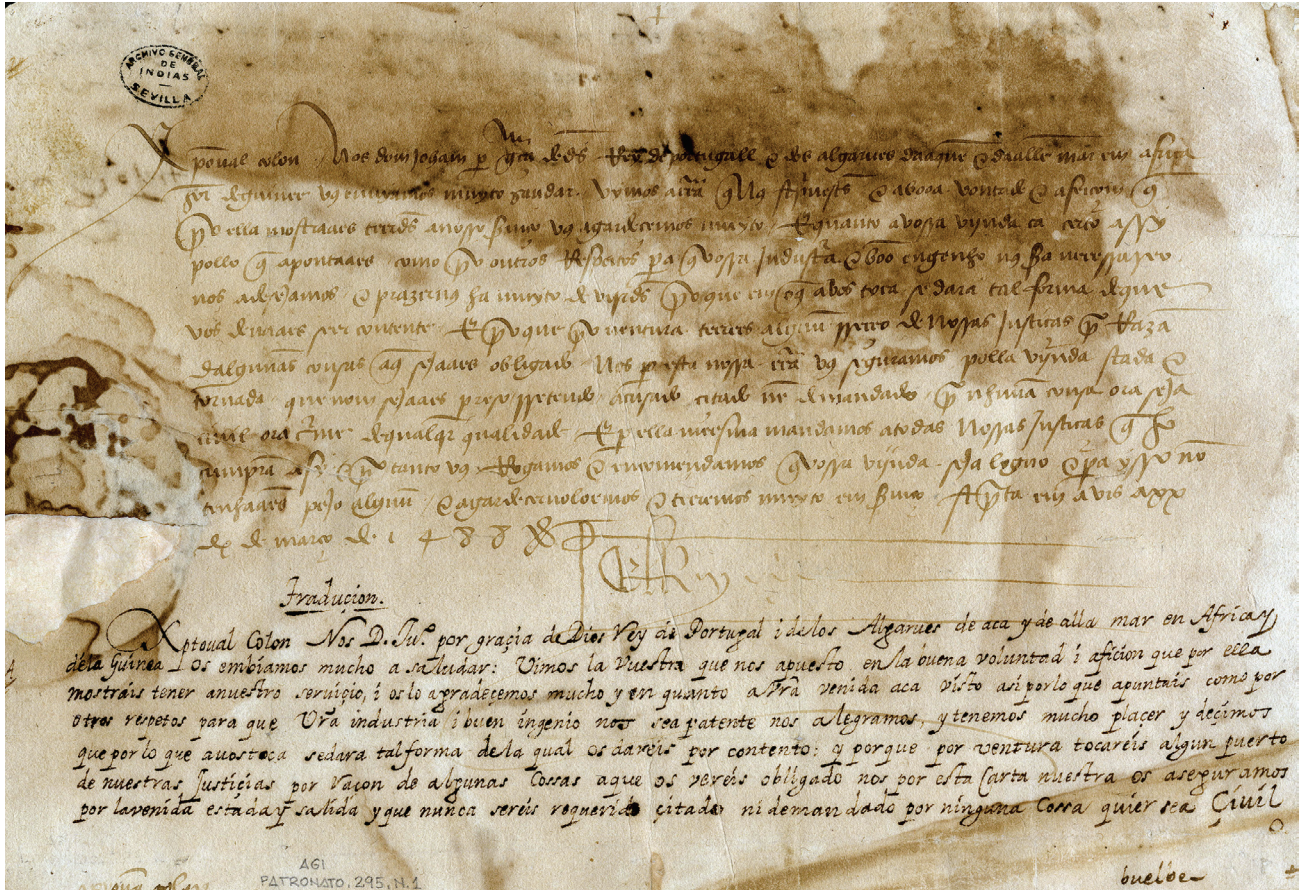 ARCHIVO GENERAL
DE
INDIAS
SEVILLA
xpoual colon Nos dom Joham per graça de ds Rey de portugall & dos algarues daaquem & daalle mar em africa
de guinee vos enuyamos muyto saudar. vymos a carta q nos & a booa vontade & afeiçom q
por ella mostraaes teerdes a nosso seruiço vos agardecemos muyto. E quanto a vossa vijnda ca certo assy
pollo q apontaaes como por outros Respeitos pera q vossa Industria & boo engenho nos sera necessareo
nos a desejamos & prazernos ha muyto de vyrdes porque em o q a vos toca se dara tal forma de que
vos deuaaes ser contente. E por que por uentura teerees algum reçeo de Nossas Justiças por Razam
dalgumas cousas a q sejaaes obligado. Nos por esta nossa carta vos seguramos polla vijnda stada &
tornada que nom sejaaes preso reteudo acusado citado nem demandado por nhuma cousa ora seja
ciuil ora crime de qualqr qualidade. E per ella meesma mandamos a todas Nossas Justiças q ho
cumpram assy E por tanto vos Rogamos & encomendamos q vossa vijnda seja logo & pera ysso nom
tenhaaes pejo algum & agardecernoloemos & teeremos muyto em seruiço. sprita em Avis a xx
de março de 1488
El Rey
Traduçion.
Xptoual Colon Nos D. Ju.º por graçia de Dios Rey de Portugal i de los Algarues de aca y de alla mar en Africa y
de la Guinea Os embiamos mucho a saludar: Vimos la Vuestra que nos apuesto en la buena voluntad i aficion que por ella
mostrais tener a nuestro seruiçio, i os lo agradeçemos mucho y en quanto a Vra venida aca visto asi por lo que apuntais como por
otros respetos para que Vra industria i buen ingenio nos sea patente nos alegramos, y tenemos mucho plaçer y deçimos
que por lo que a uos toca se dara tal forma de la qual os dareis por contento: y porque por ventura tocareis algun puerto
de nuestras Justiçias por Raçon de algunas Cossas a que os vereis obligado nos por esta Carta nuestra os aseguramos
por la venida estada y salida y que nunca sereis requerido çitado ni demandado por ninguna Cossa quier sea Çiuil
o
buelbe
AGI
PATRONATO, 295, N.1